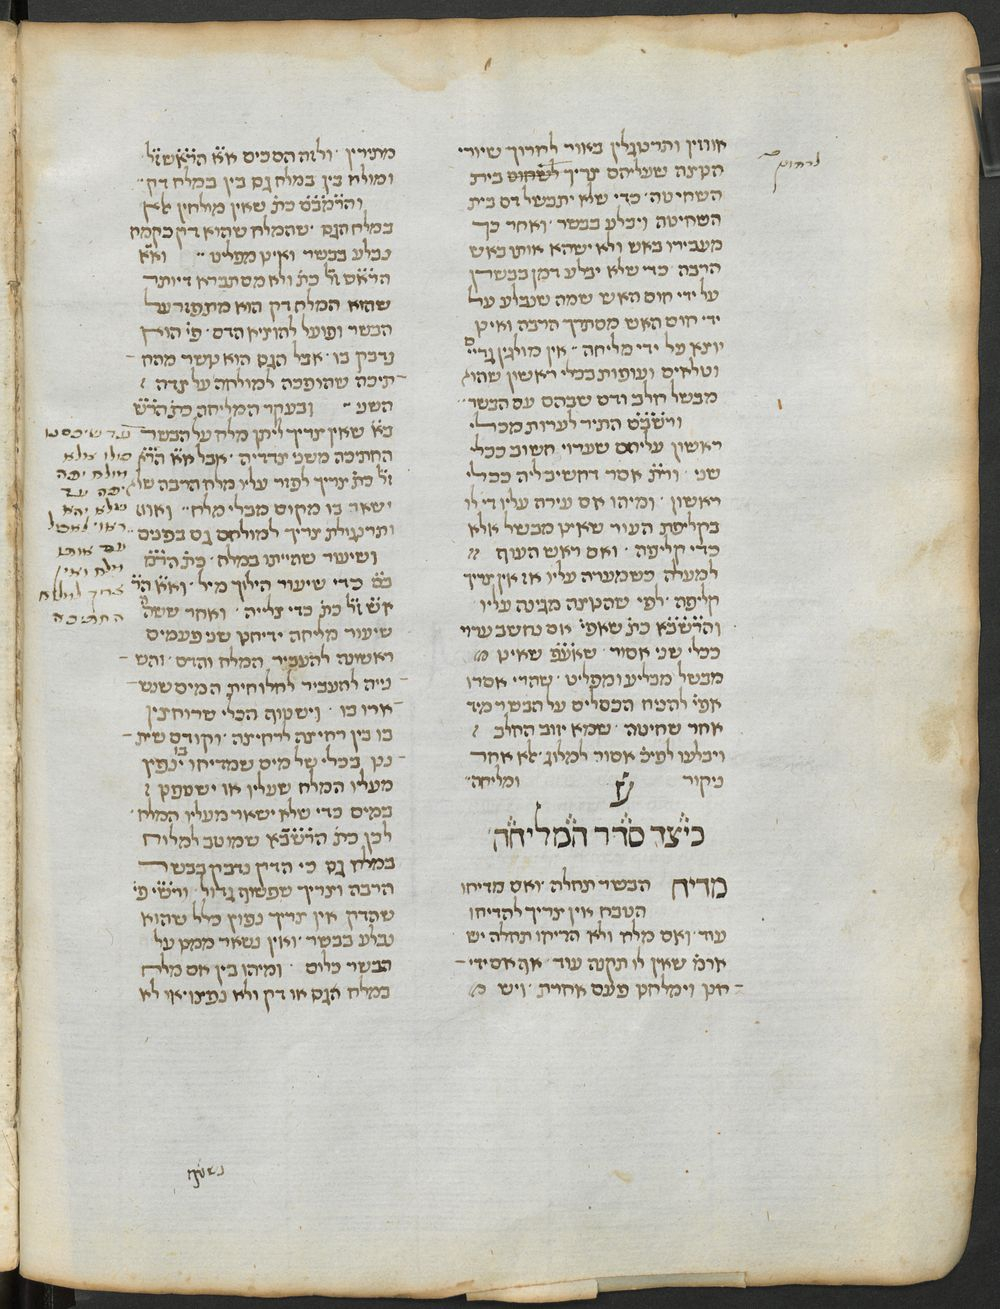 אווזין ותרנגלין באור לחרוך שיורי
הנוצה שעליהם צריך לשחוט בית
השחיטה כדי שלא יתבשל דם בית
השחיטה ויבלע בבשר ואחר כך
מעבירו באש ולא ישהא אותו באש
הרבה כדי שלא יבלע דמן בבשרן
על ידי חום האש שמה שנבלע על
ידי חום האש מסתרך הרבה ואינו
יוצא על ידי מליחה אין מולגין גדיים
וטלאים ועופות בכלי ראשון שהוא
מבשל חלב ודם שבהם עם הבשר
ורשב״ם התיר לערות מכלי
ראשון עליהם שערוי חשוב ככלי
שני ור״ת אסר דחשיב ליה ככלי
ראשון ומיהו אם עירה עליו די לו
בקליפת העור שאינו מבשל אלא
כדי קליפה ואם ראש העוף
למעלה כשמערה עליו אז אין צריך
קליפה לפי שהנוצה מגינה עליו
והרשב״א כת׳ שאפי׳ אם נחשב ערוי
ככלי שני אסור שאע״פ שאינו
מבשל מבליע ומפליט שהרי אסרו
אפי׳ להניח הכסלים על הבשר מיד
אחר שחיטה שמא יזוב החלב
ויבלעו לפיכ׳ אסור למלוג לא אחר
ניקור ומליחה
ע׳
כיצד סדר המליחה
מדיח הבשר תחלה ואם מדיחו
הטבח אין צריך להדיחו
עוד ואם מלח ולא הדיחו תחלה יש
אומ׳ שאין לו תקנה עוד אף אם ידי
חנו וימלחנו פעם אחרת ויש
מתירין ולזה הסכים א״א הרא״ש ז״ל
ומולח בין במלח גס בין במלח דק
והרמב״ם כת׳ שאין מולחין אלא
במלח הגס שהמלח שהוא דק כקמח
נבלע בבשר ואינו מפליט וא״א
הרא״ש ז״ל כת׳ ולא מסתברא דיותר
שהוא המלח דק הוא מתפזר על
הבשר ופועל להוציא הדם פי׳ הוא
נדבק בו אבל הגס הוא נשר מהח
תיכה שהופכה למולחה על צדה
השני ובעקר המליחה כת׳ הרש
ב״א שאין צריך ליתן מלח על הבשר
החתיכה משני צדדיה אבל א״א הרא״ש
ז״ל כת׳ צריך לפזר עליו מלח הרבה שלא
ישאר בו מקום מבלי מלח ואווז
ותרנגולת צריך למולחם גם בפנים
ושיעור שהייתו במלח כת׳ הרמ
ב״ם כדי שיעור הילוך מיל וא״א הר
א״ש ז״ל כת׳ כדי צלייה ואחר ששהה
שיעור מליחה ידיחנו שני פעמים
ראשונה להעביר המלח והדם והש
נייה להעביר לחלוחית המים שנש
ארו בו וישטוף הכלי שרוחצין
בו בין רחיצה לרחיצה וקודם שית
ננו בכלי של מים שמדיחו בו ינפץ
מעליו המלח שעליו או ישטפנו
במים כדי שלא ישאר מעליו המלח
לכן כת׳ הרשב״א שמוטב למלוח
במלח גס כי הדק נדבק בבשר
הרבה וצריך שפשוף גדול ורש״י פי׳
שהדק אין צריך נפוץ כלל שהוא
נבלע בבשר ואין נשאר ממנו על
הבשר כלום ומיהו בין אם מלח
במלח הגס או דק ולא נפצו או לא
עד שיכסנו
כולו אלא
מולח יפה
יפה עד
שלא יהא
ראוי לאכול
עם אותו
מלח ואין
צריך למלא
החתיכה